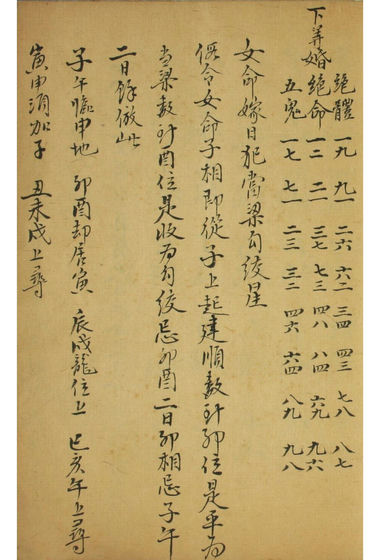 絕體 一九 九一 二六 六二 三四 四三 七八 八七
下䓁婚 絕命 一二 二一 三七 七三 四八 八四 六九 九六
五鬼 一七 七一 二三 三二 四六 六四 八九 九八
女命嫁日犯當梁勾絞星
假令女命子相即從子上起建順數到卯位是平為
當梁數到酉位是收為勾絞忌卯酉二日卯相忌子午
二日餘倣此
子午臨申地 卯酉却居寅 辰戌龍位上 巳亥午上尋
寅申須加子 丑未戌上尋